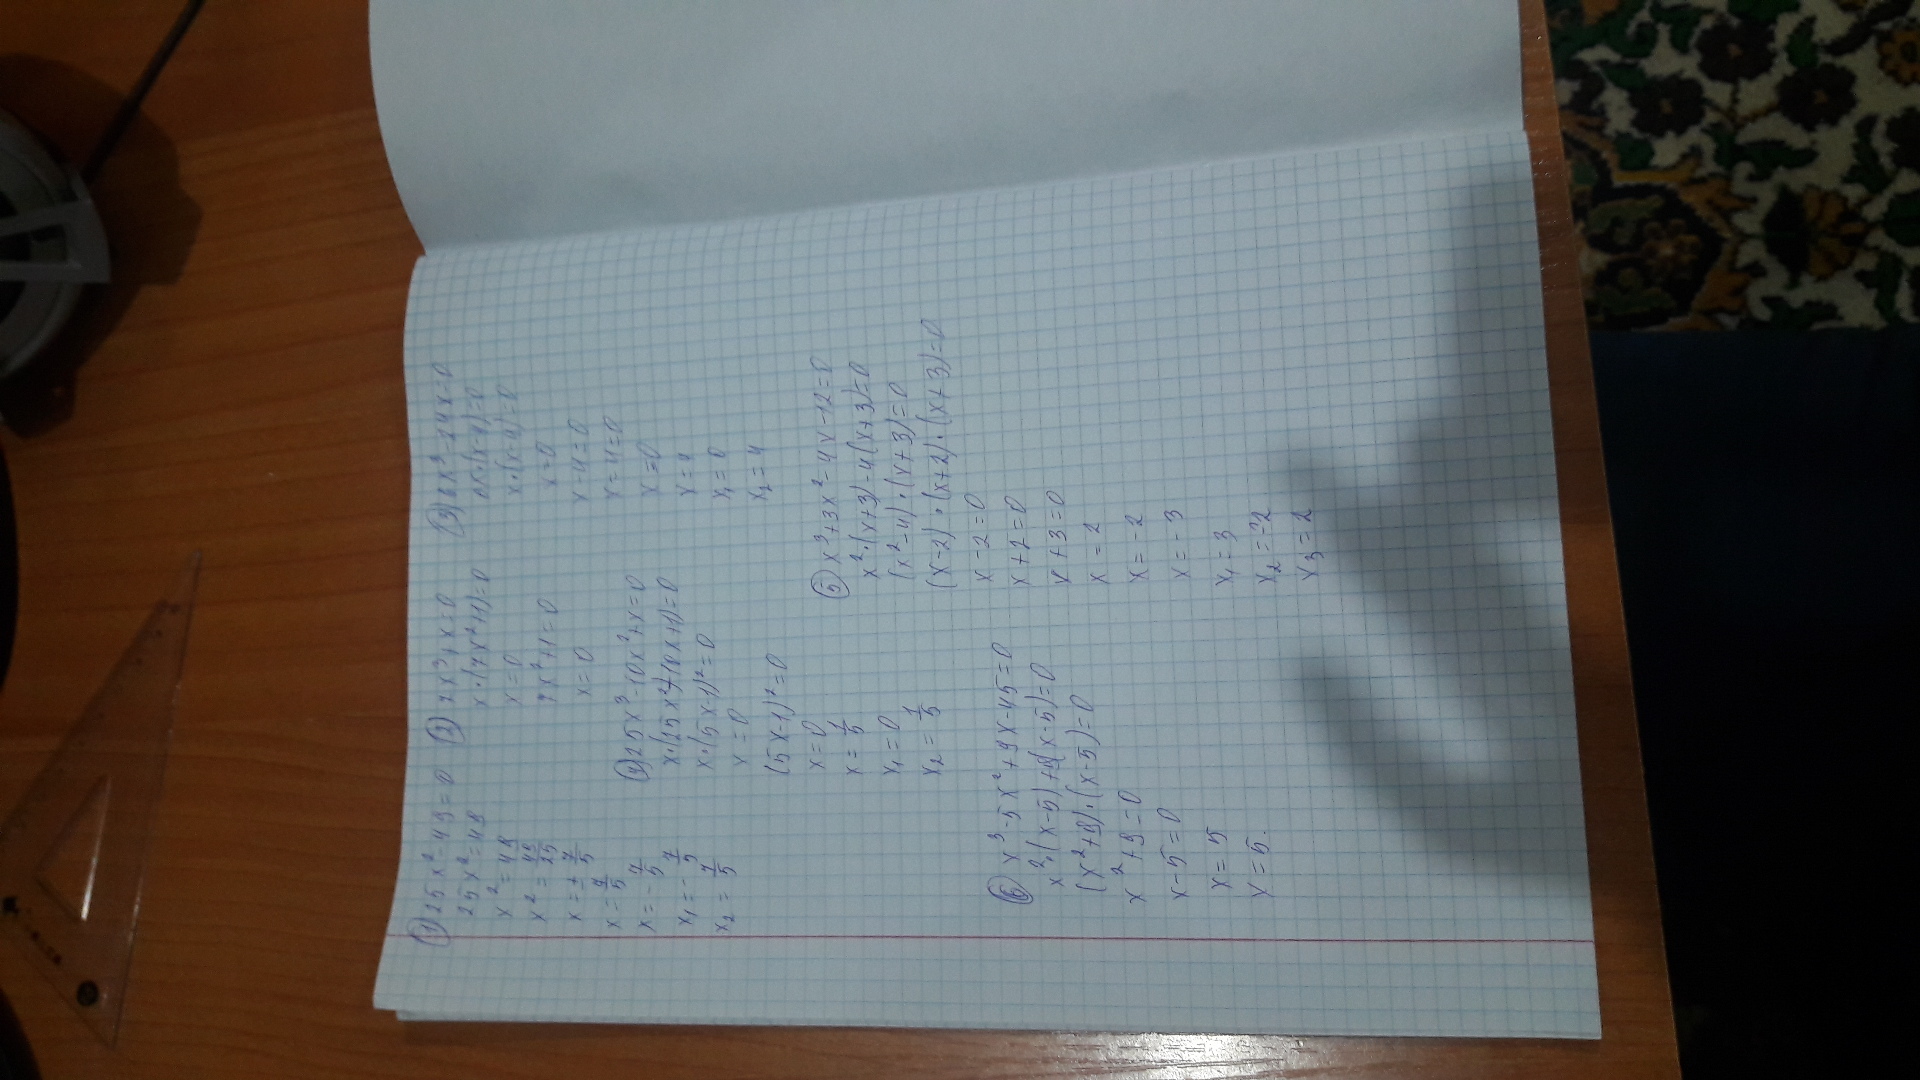 ① 25x² - 49 = 0
25x² = 49
x² = 49
x² = 49/25
x = ± 7/5
x = 7/5
x = - 7/5
x₁ = - 7/5
x₂ = 7/5
② 7x³ + x = 0
x·(7x²+1) = 0
x = 0
7x² + 1 = 0
x = 0
③ 6x² - 24x = 0
6x·(x-4) = 0
x·(x-4) = 0
x = 0
x - 4 = 0
x - 4 = 0
x = 0
x = 4
x₁ = 0
x₂ = 4
④ 25x³ - 10x² + x = 0
x·(25x² - 10x + 1) = 0
x·(5x-1)² = 0
x = 0
(5x-1)² = 0
x = 0
x = 1/5
x₁ = 0
x₂ = 1/5
⑤ x³ + 3x² - 4x - 12 = 0
x²·(x+3) - 4(x+3) = 0
(x²-4)·(x+3) = 0
(x-2)·(x+2)·(x+3) = 0
x - 2 = 0
x + 2 = 0
x + 3 = 0
x = 2
x = -2
x = -3
x₁ = 3
x₂ = -2
x₃ = 2
⑥ x³ - 5x² + 9x - 45 = 0
x²·(x-5) + 9(x-5) = 0
(x²+9)·(x-5) = 0
x² + 9 = 0
x - 5 = 0
x = 5
x = 5.